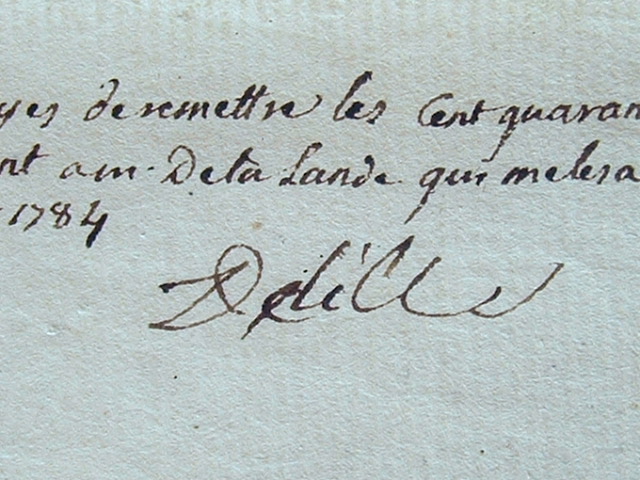 yes de remettre les Cent quaran
nt a m. De la Lande qui me les a
1784
Delille